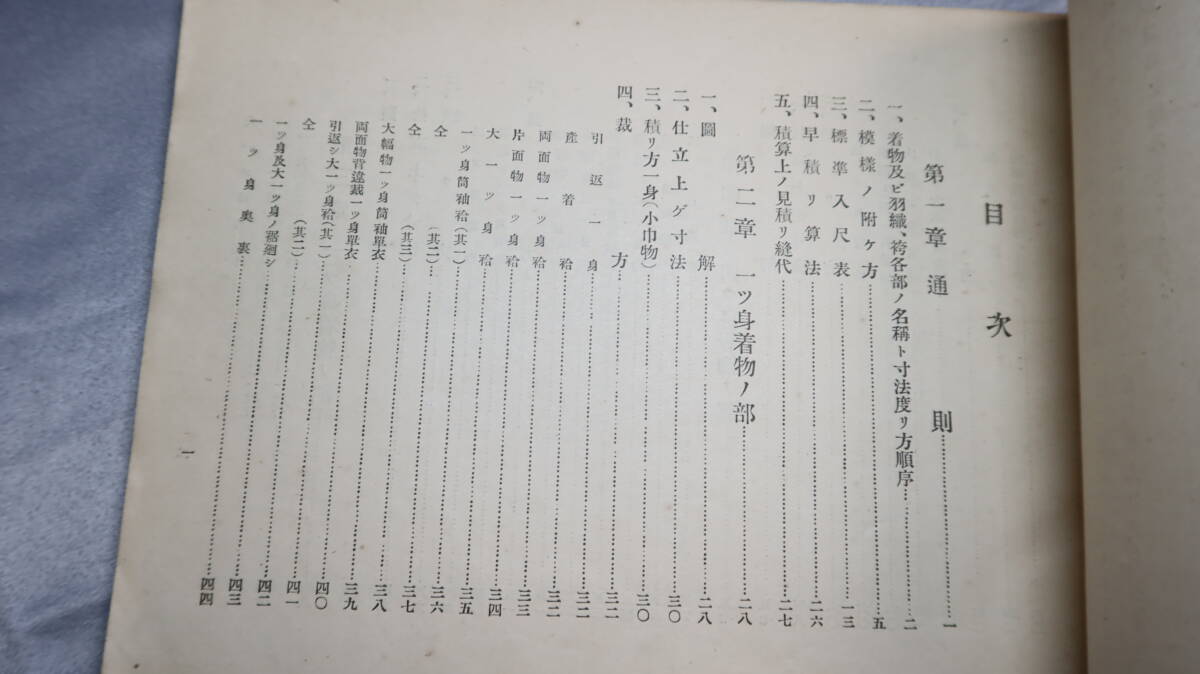 目次
第一章 通則…一
一、着物及ビ羽織、袴各部ノ名稱ト寸法度リ方順序…二
二、模樣ノ附ケ方…五
三、標準入尺表…一三
四、早積リ算法…二六
五、積算上ノ見積リ縫代…二七
第二章 一ツ身着物ノ部…二八
一、圖解…二八
二、仕立上ゲ寸法…三〇
三、積リ方一身（小巾物）…三〇
四、裁方…三二
引返一身…三二
産着袷…三二
両面物一ッ身袷…三三
片面物一ッ身袷…三四
大一ッ身袷…三五
一ッ身筒袖袷（其一）…三六
仝（其二）…三七
仝（其三）…三八
大幅物一ッ身筒袖單衣…三九
両面物背違裁一ッ身單衣…四〇
引返シ大一ッ身袷（其一）…四一
仝（其二）…四二
一ッ身及大一ッ身ノ裾廻シ…四三
一ッ身奥裏…四四
一